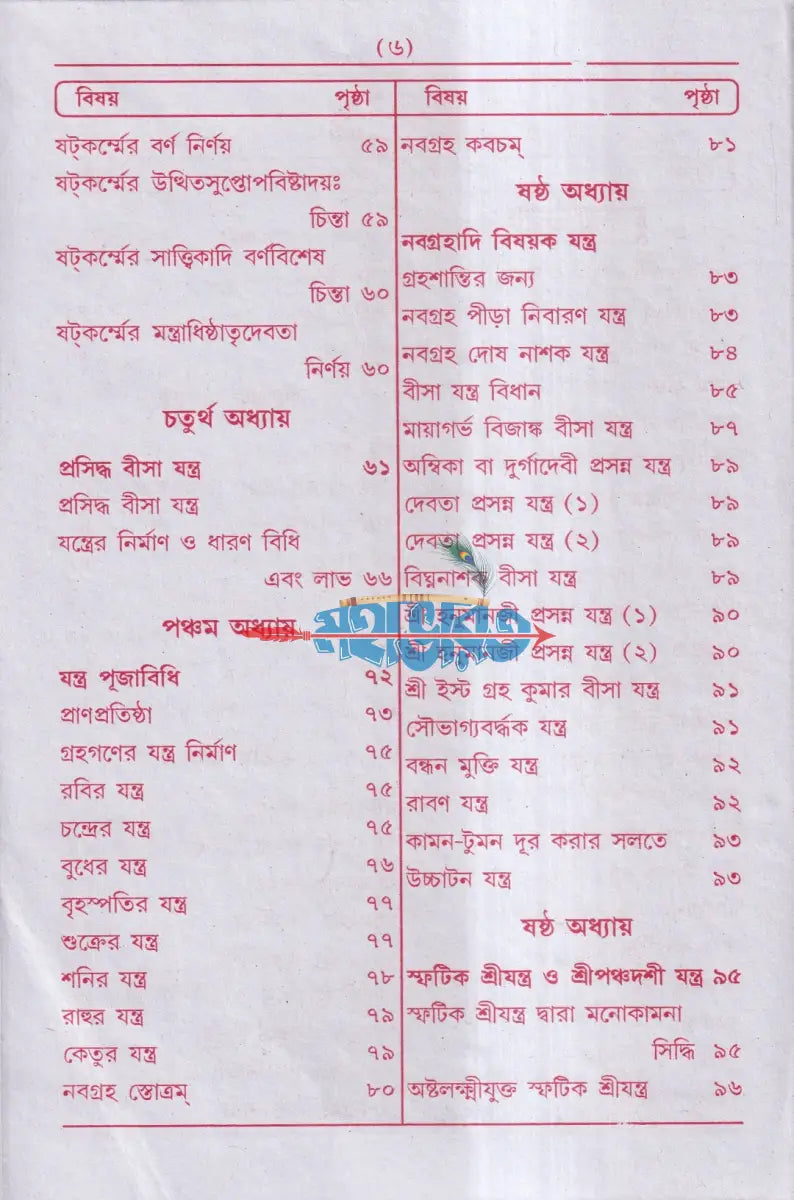 (৬)
বিষয় পৃষ্ঠা
ষট্‌কর্ম্মের বর্ণ নির্ণয় ৫৯
ষট্‌কর্ম্মের উত্থিতসুপ্তোপবিষ্টাদয়ঃ
চিন্তা ৫৯
ষট্‌কর্ম্মের সাত্ত্বিকাদি বর্ণবিশেষ
চিন্তা ৬০
ষট্‌কর্ম্মের মন্ত্রাধিষ্ঠাতৃদেবতা
নির্ণয় ৬০
চতুর্থ অধ্যায়
প্রসিদ্ধ বীসা যন্ত্র ৬১
প্রসিদ্ধ বীসা যন্ত্র
যন্ত্রের নির্মাণ ও ধারণ বিধি
এবং লাভ ৬৬
পঞ্চম অধ্যায়
যন্ত্র পূজাবিধি ৭২
প্রাণপ্রতিষ্ঠা ৭৩
গ্রহগণের যন্ত্র নির্মাণ ৭৫
রবির যন্ত্র ৭৫
চন্দ্রের যন্ত্র ৭৫
বুধের যন্ত্র ৭৬
বৃহস্পতির যন্ত্র ৭৭
শুক্রের যন্ত্র ৭৭
শনির যন্ত্র ৭৮
রাহুর যন্ত্র ৭৯
কেতুর যন্ত্র ৭৯
নবগ্রহ স্তোত্রম্ ৮০
বিষয় পৃষ্ঠা
নবগ্রহ কবচম্ ৮১
ষষ্ঠ অধ্যায়
নবগ্রহাদি বিষয়ক যন্ত্র
গ্রহশান্তির জন্য ৮৩
নবগ্রহ পীড়া নিবারণ যন্ত্র ৮৩
নবগ্রহ দোষ নাশক যন্ত্র ৮৪
বীসা যন্ত্র বিধান ৮৫
মায়াগর্ভ বিজাঙ্ক বীসা যন্ত্র ৮৭
অম্বিকা বা দুর্গাদেবী প্রসন্ন যন্ত্র ৮৯
দেবতা প্রসন্ন যন্ত্র (১) ৮৯
দেবতা প্রসন্ন যন্ত্র (২) ৮৯
বিঘ্ননাশক বীসা যন্ত্র ৮৯
শ্রী হনুমানজী প্রসন্ন যন্ত্র (১) ৯০
শ্রী হনুমানজী প্রসন্ন যন্ত্র (২) ৯০
শ্রী ইস্ট গ্রহ কুমার বীসা যন্ত্র ৯১
সৌভাগ্যবর্দ্ধক যন্ত্র ৯১
বন্ধন মুক্তি যন্ত্র ৯২
রাবণ যন্ত্র ৯২
কামন-টুমন দূর করার সলতে ৯৩
উচ্চাটন যন্ত্র ৯৩
ষষ্ঠ অধ্যায়
স্ফটিক শ্রীযন্ত্র ও শ্রীপঞ্চদশী যন্ত্র ৯৫
স্ফটিক শ্রীযন্ত্র দ্বারা মনোকামনা
সিদ্ধি ৯৫
অষ্টলক্ষ্মীযুক্ত স্ফটিক শ্রীযন্ত্র ৯৬